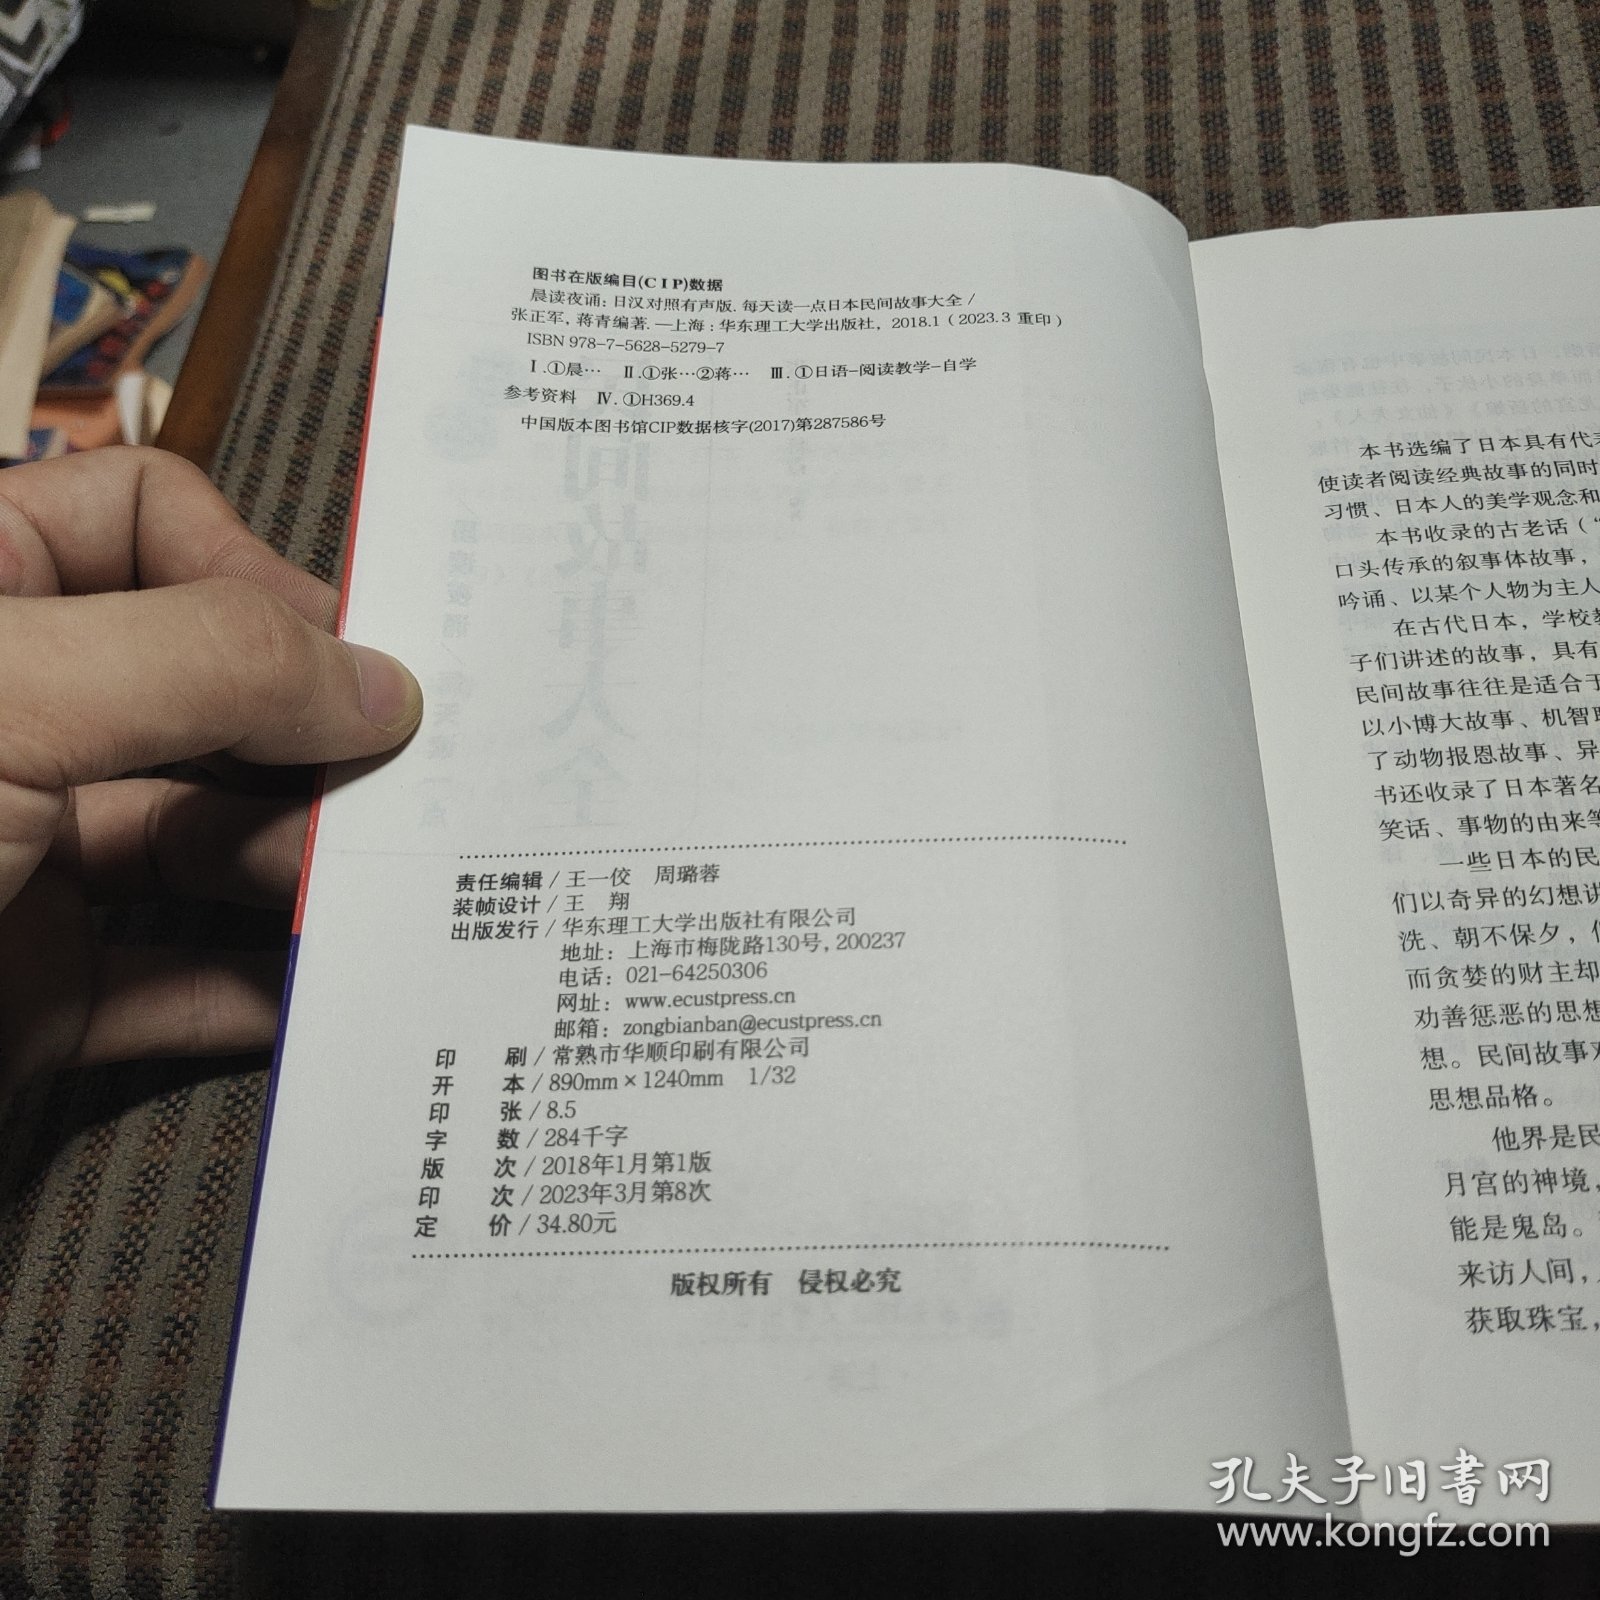 图书在版编目(CIP)数据
晨读夜诵：日汉对照有声版. 每天读一点日本民间故事大全 /
张正军, 蒋青编著. —上海：华东理工大学出版社, 2018.1（2023.3 重印）
ISBN 978-7-5628-5279-7
Ⅰ.①晨… Ⅱ.①张…②蒋… Ⅲ.①日语-阅读教学-自学
参考资料 Ⅳ.①H369.4
中国版本图书馆CIP数据核字(2017)第287586号
责任编辑 / 王一佼 周璐蓉
装帧设计 / 王 翔
出版发行 / 华东理工大学出版社有限公司
地址：上海市梅陇路130号, 200237
电话：021-64250306
网址：www.ecustpress.cn
邮箱：zongbianban@ecustpress.cn
印 刷 / 常熟市华顺印刷有限公司
开 本 / 890mm×1240mm 1/32
印 张 / 8.5
字 数 / 284千字
版 次 / 2018年1月第1版
印 次 / 2023年3月第8次
定 价 / 34.80元
版权所有 侵权必究
本书选编了日本具有代
使读者阅读经典故事的同时
习惯、日本人的美学观念和
本书收录的古老话（“
口头传承的叙事体故事，
吟诵、以某个人物为主人
在古代日本，学校
子们讲述的故事，具有
民间故事往往是适合于
以小博大故事、机智
了动物报恩故事、异
书还收录了日本著名
笑话、事物的由来等
一些日本的民
们以奇异的幻想讲
洗、朝不保夕，
而贪婪的财主却
劝善惩恶的思想
想。民间故事对
思想品格。
他界是民
月宫的神境，
能是鬼岛。
来访人间，
获取珠宝，
孔夫子旧书网
www.kongfz.com